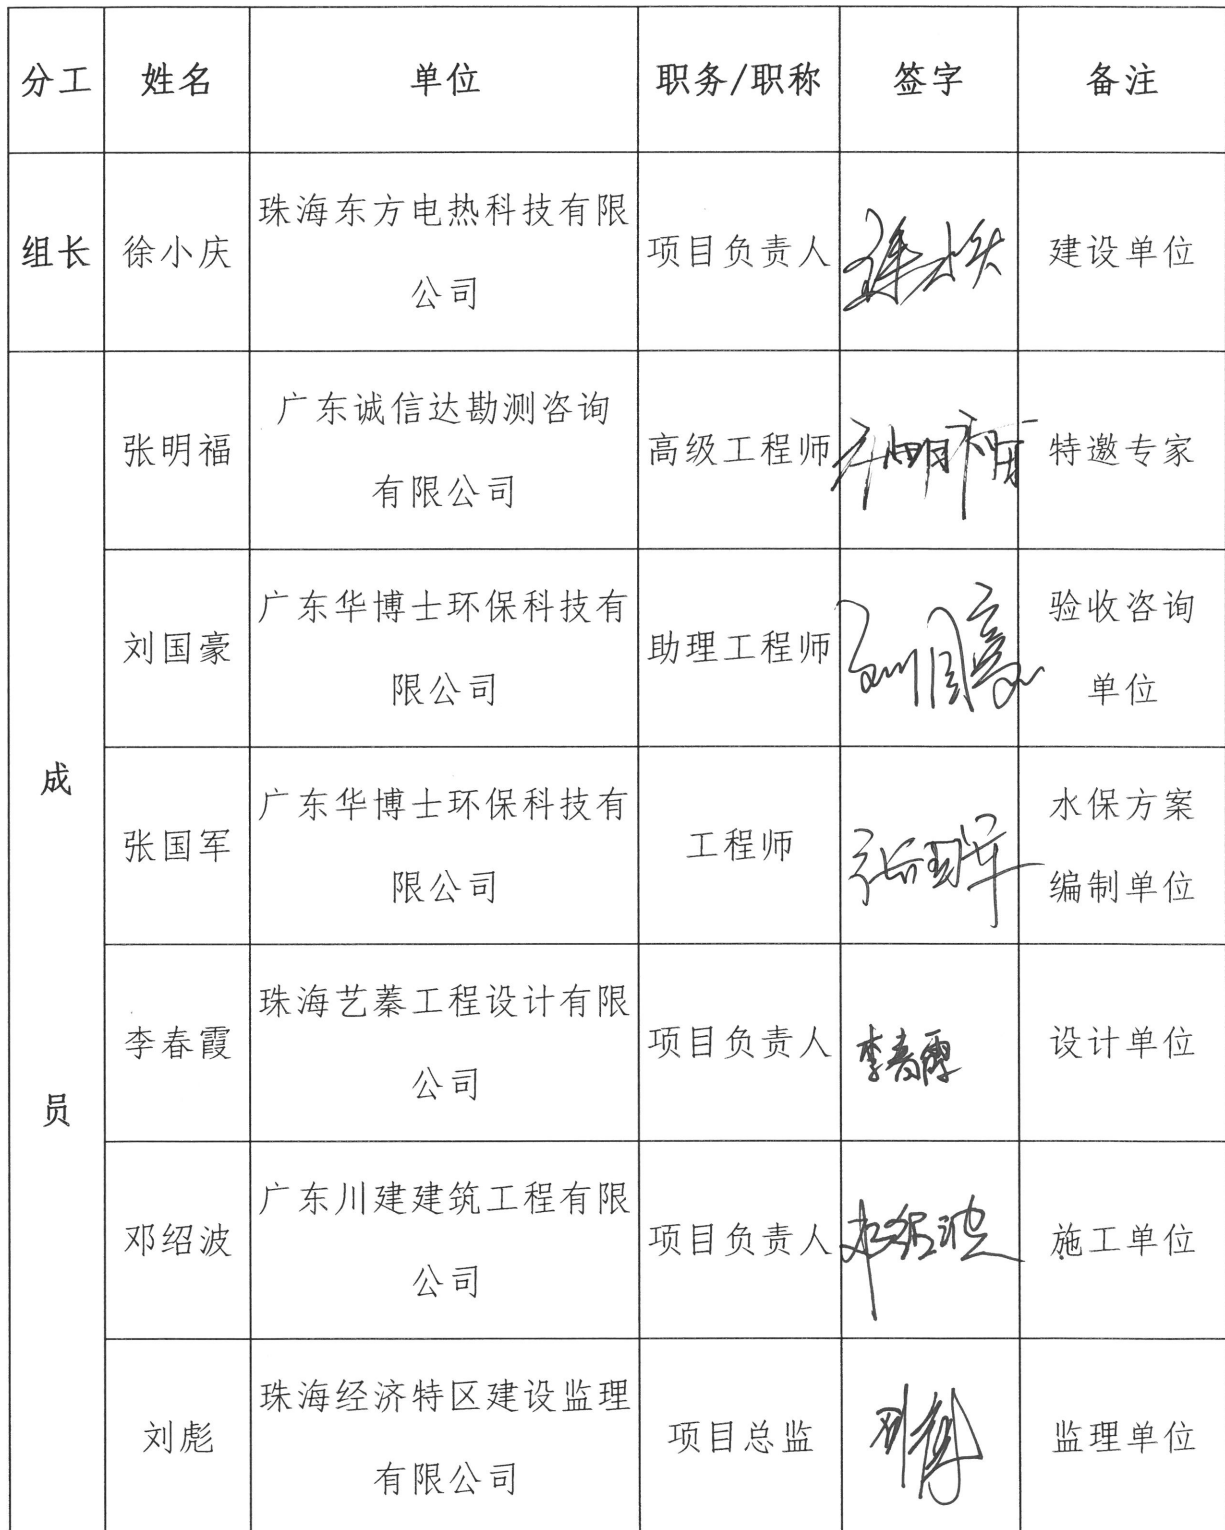 分工 姓名 单位 职务/职称 签字 备注
组长 徐小庆 珠海东方电热科技有限 项目负责人 徐小庆 建设单位
公司
成
员
张明福 广东诚信达勘测咨询 高级工程师 张明福 特邀专家
有限公司
刘国豪 广东华博士环保科技有 助理工程师 刘国豪 验收咨询
限公司 单位
张国军 广东华博士环保科技有 工程师 张国军 水保方案
限公司 编制单位
李春霞 珠海艺蓁工程设计有限 项目负责人 李春霞 设计单位
公司
邓绍波 广东川建建筑工程有限 项目负责人 邓绍波 施工单位
公司
刘彪 珠海经济特区建设监理 项目总监 刘彪 监理单位
有限公司